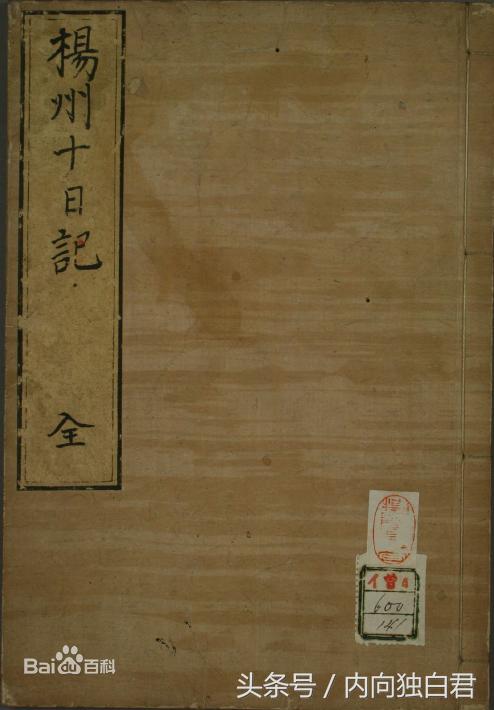 楊州十日記
全
イ曽4
600
141
Baidu百科
头条号 / 内向独白君